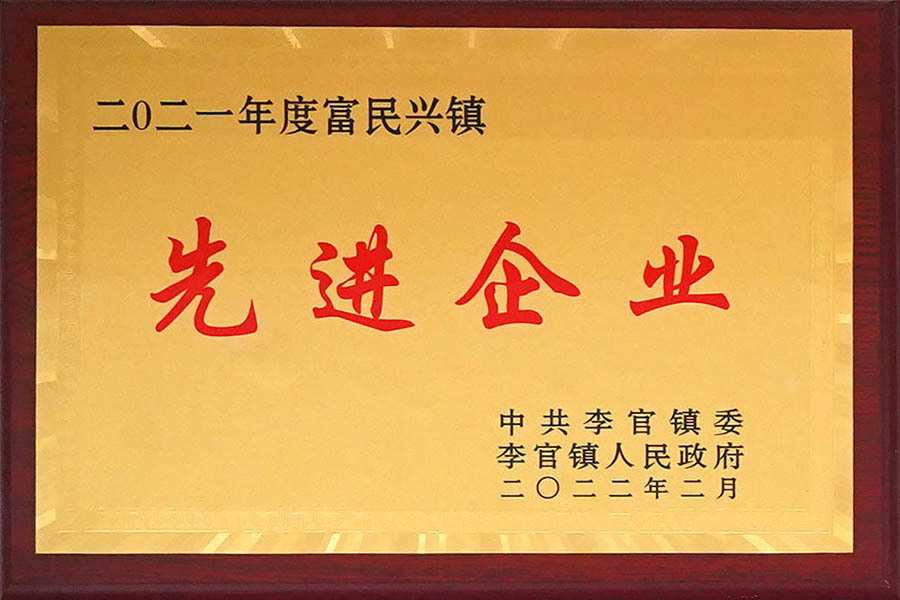 二0二一年度富民兴镇
先进企业
中共李官镇委
李官镇人民政府
二〇二二年二月